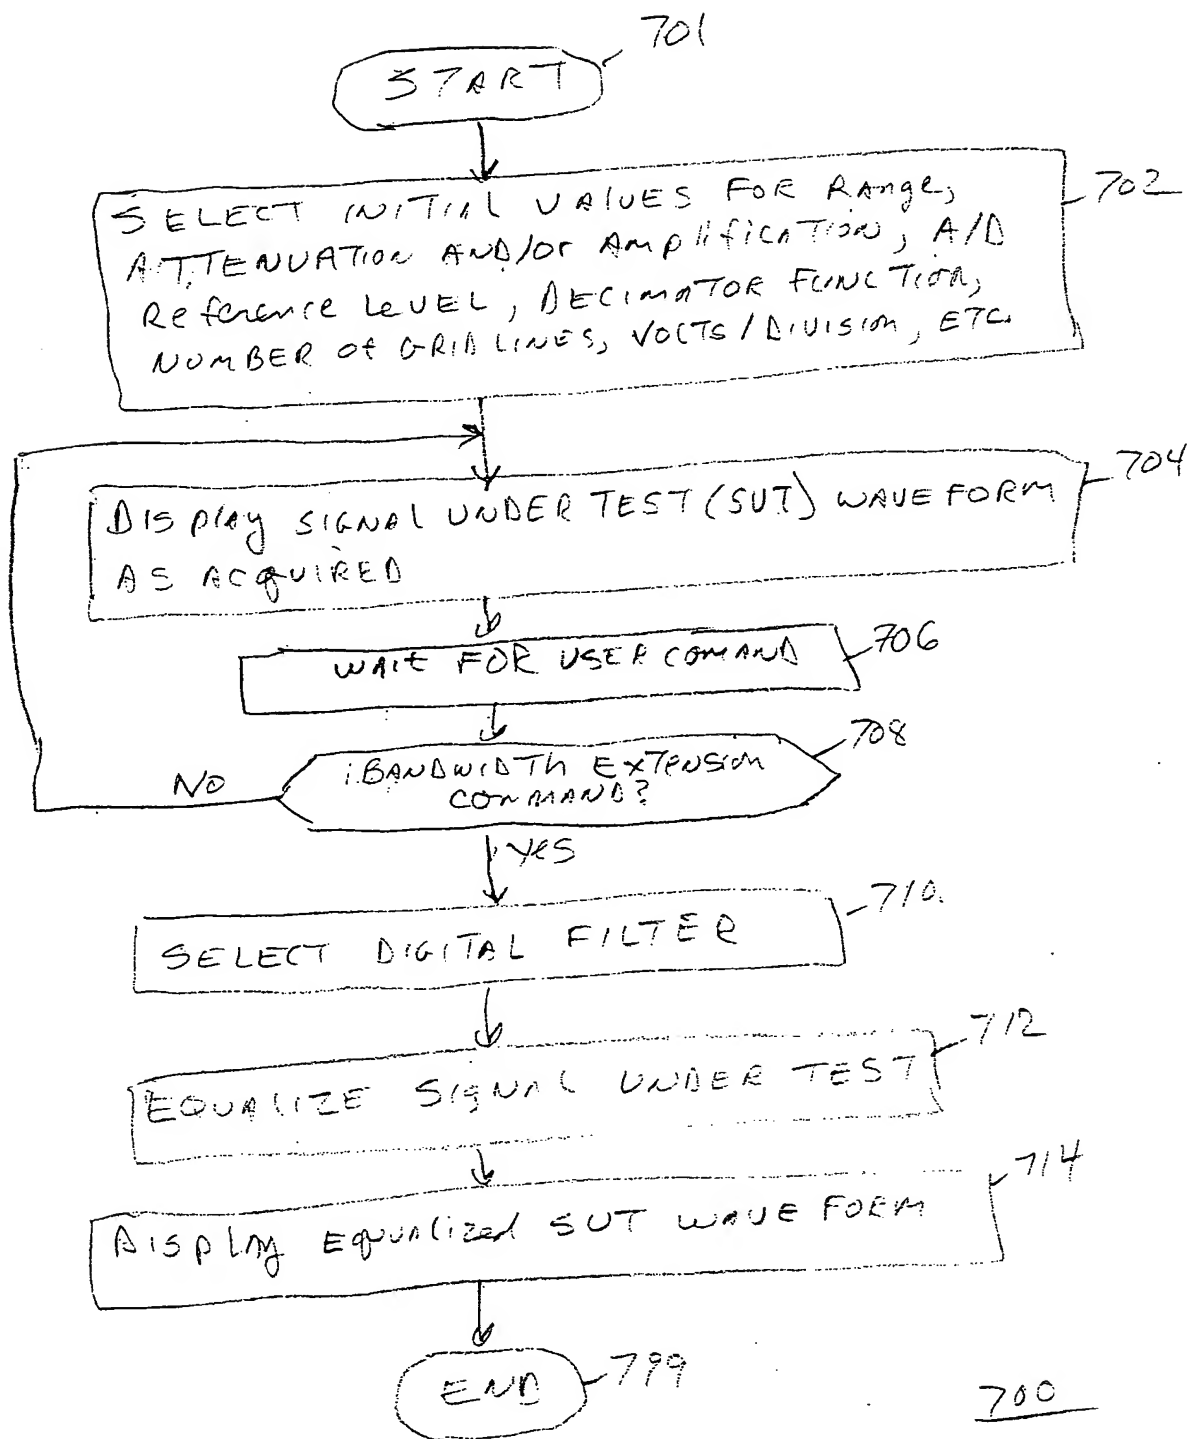 701
START
702
SELECT INITIAL VALUES FOR Range,
ATTENUATION AND/or Amplification, A/D
Reference LEVEL, DECIMATOR FUNCTION,
NUMBER of GRID LINES, VOLTS/DIVISION, ETC.
704
Display SIGNAL UNDER TEST (SUT) WAVEFORM
AS ACQUIRED
WAIT FOR USER COMAND
706
708
BANDWIDTH EXTENSION
COMMAND?
NO
yes
710
SELECT DIGITAL FILTER
712
EQUALIZE SIGNAL UNDER TEST
714
Display Equalized SUT WAVE FORM
END
799
700